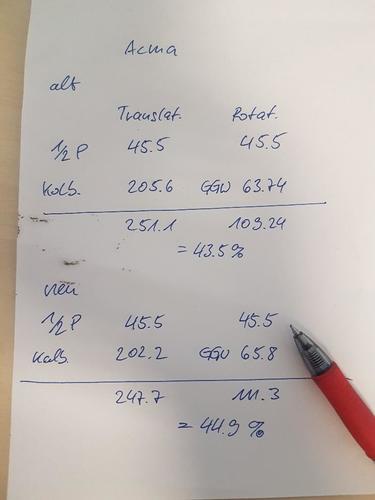 Acma
alt
Translat. Rotat.
1/2 P 45.5 45.5
Kolb. 205.6 GGW 63.74
251.1 109.24
= 43.5 %
neu
1/2 P 45.5 45.5
Kolb. 202.2 GGW 65.8
247.7 111.3
= 44.9 %